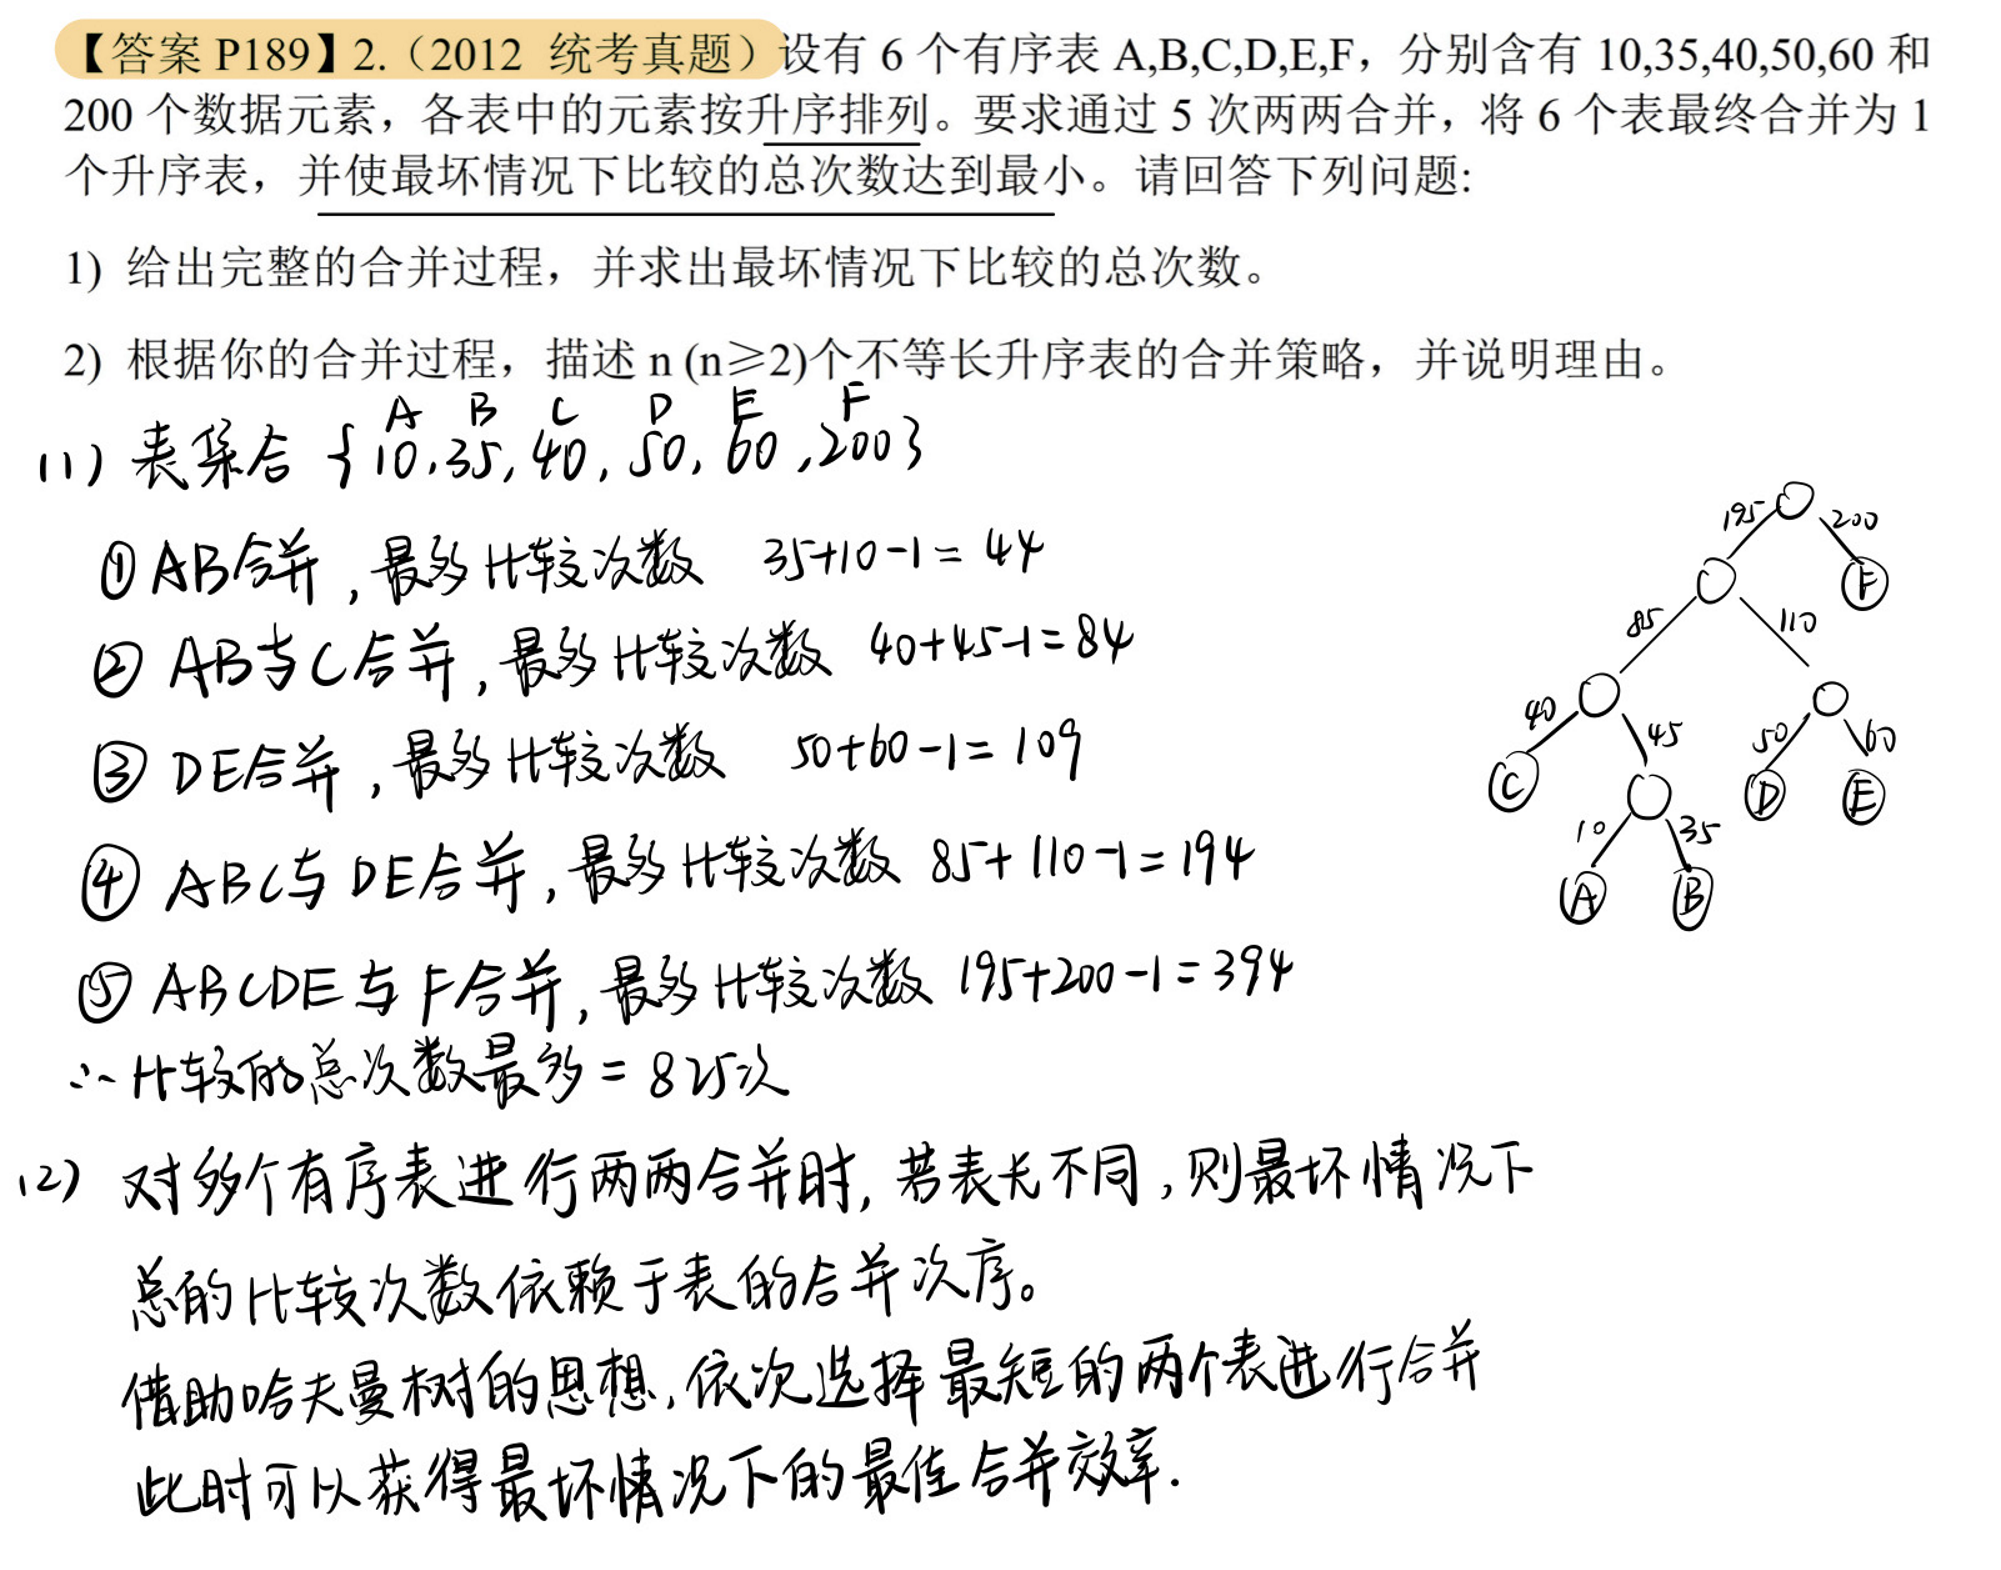 【答案 P189】2.（2012 统考真题）设有 6 个有序表 A,B,C,D,E,F，分别含有 10,35,40,50,60 和
200 个数据元素，各表中的元素按升序排列。要求通过 5 次两两合并，将 6 个表最终合并为 1
个升序表，并使最坏情况下比较的总次数达到最小。请回答下列问题:
1) 给出完整的合并过程，并求出最坏情况下比较的总次数。
2) 根据你的合并过程，描述 n (n≥2)个不等长升序表的合并策略，并说明理由。
A B C D E F
(1) 表集合 {10,35,40,50,60,200}
① AB合并,最多比较次数 35+10-1=44
② AB与C合并,最多比较次数 40+45-1=84
③ DE合并,最多比较次数 50+60-1=109
④ ABC与DE合并,最多比较次数 85+110-1=194
⑤ ABCDE与F合并,最多比较次数 195+200-1=394
∴比较的总次数最多=825次
195 200
F
85 110
40 45 50 60
C D E
10 35
A B
(2) 对多个有序表进行两两合并时,若表长不同,则最坏情况下
总的比较次数依赖于表的合并次序。
借助哈夫曼树的思想,依次选择最短的两个表进行合并
此时可以获得最坏情况下的最佳合并效率.